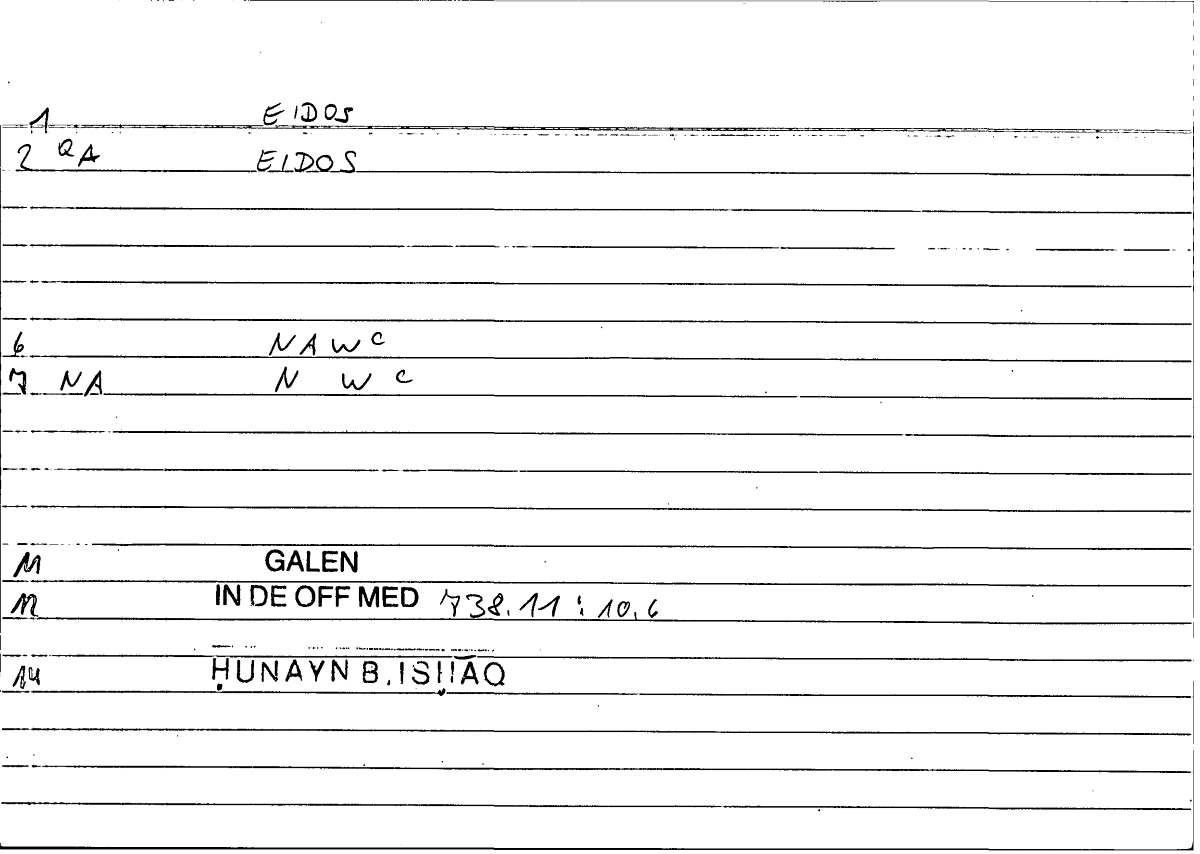 1 EIDOS
2 QA EIDOS
6 NAWC
7 NA N W C
11 GALEN
12 IN DE OFF MED 738.11 : 10.6
14 ḤUNAYN B. ISḤĀQ